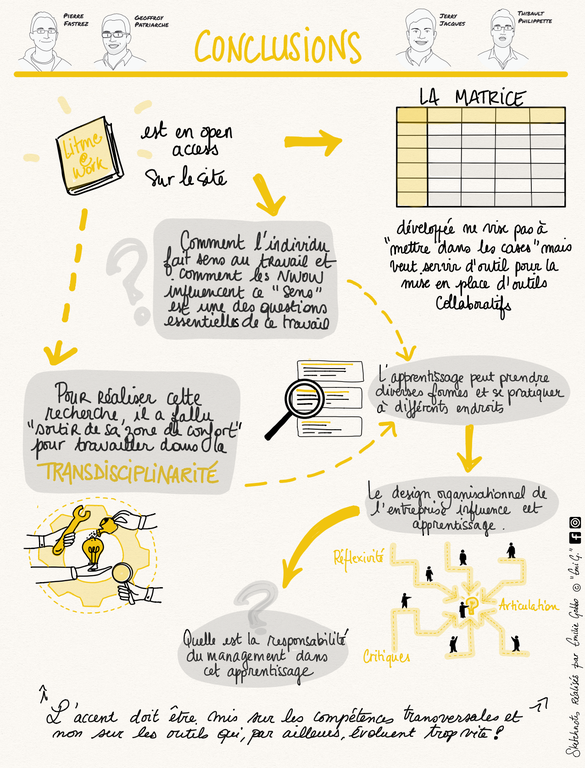 PIERRE
FASTREZ
GEOFFROY
PATRIARCHE
CONCLUSIONS
JERRY
JACQUES
THIBAULT
PHILIPPETTE
Litme
@
Work
est en open
access
Sur le site
LA MATRICE
développée ne vise pas à
"mettre dans les cases" mais
veut servir d'outil pour la
mise en place d'outils
Collaboratifs
?
Comment l'individu
fait sens au travail et
comment les NWOW
influencent ce "Sens"
est une des questions
essentielles de ce travail
Pour réaliser cette
recherche, il a fallu
"sortir de sa zone de confort"
pour travailler dans la
TRANSDISCIPLINARITÉ
L'apprentissage peut prendre
diverses formes et se pratiquer
à différents endroits
Le design organisationnel de
l'entreprise influence cet
apprentissage.
Réflexivité
Articulation
Critiques
?
Quelle est la responsabilité
du management dans
cet apprentissage
L'accent doit être mis sur les compétences transversales et
non sur les outils qui, par ailleurs, évoluent trop vite !
Sketchnotes réalisés par Emilie Gobbo © "Emi G."